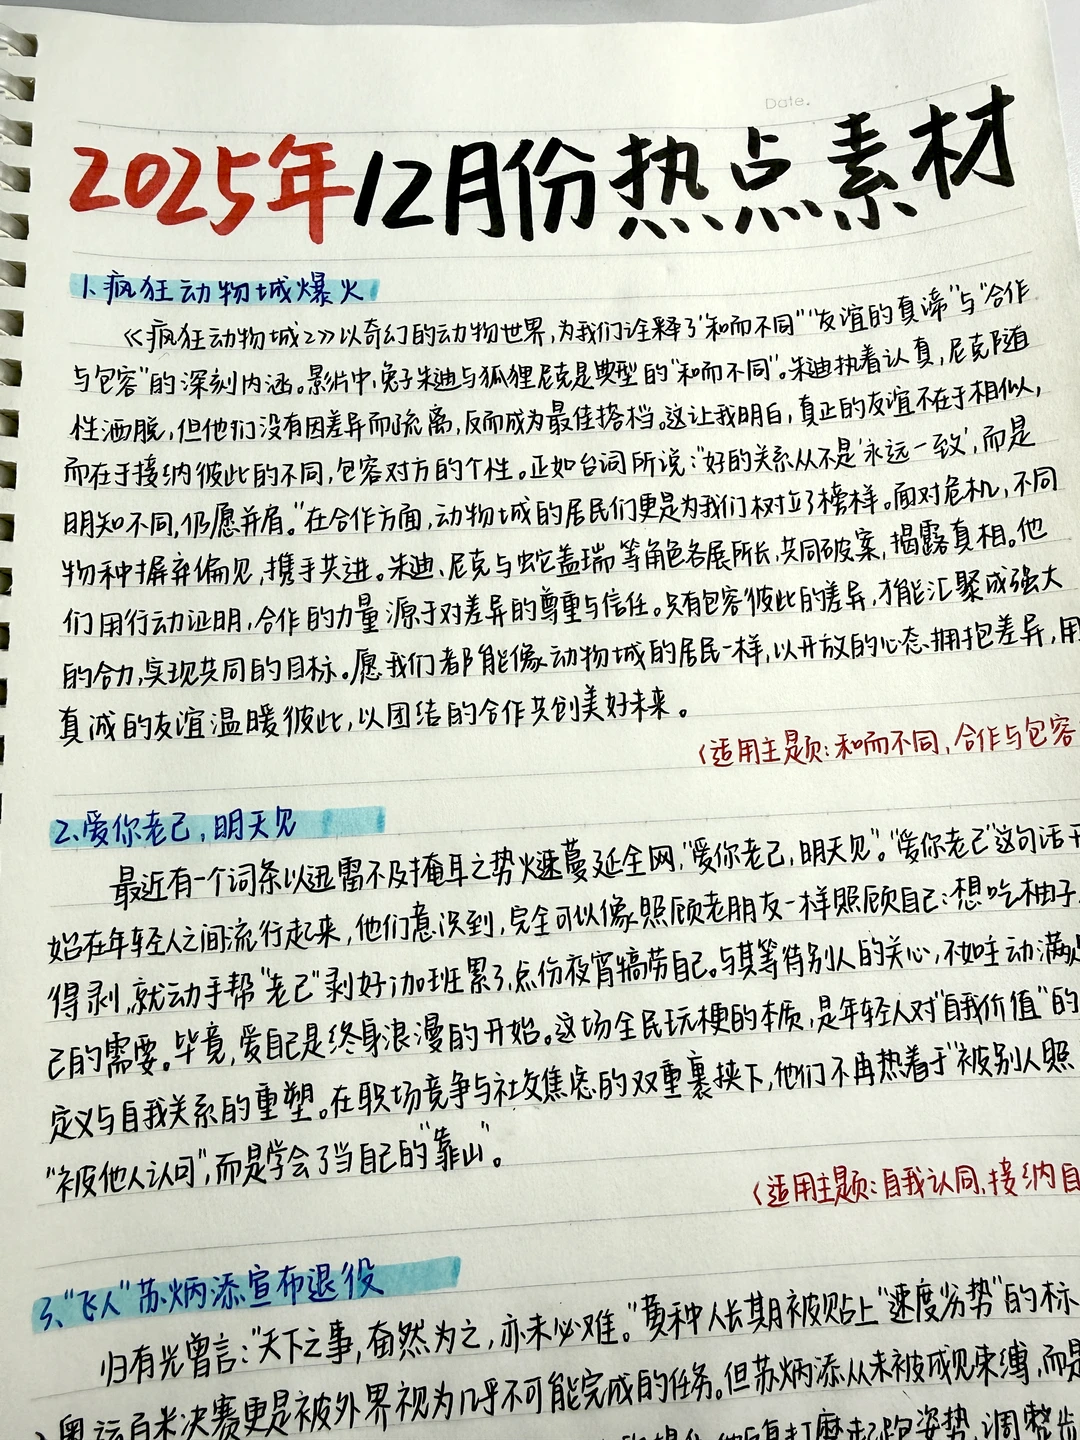 Date.
2025年12月份热点素材
1.疯狂动物城爆火
《疯狂动物城2》以奇幻的动物世界,为我们诠释了"和而不同""友谊的真谛"与"合作
与包容"的深刻内涵。影片中,兔子朱迪与狐狸尼克是典型的"和而不同"。朱迪执着认真,尼克随
性洒脱,但他们没有因差异而疏离,反而成为最佳搭档。这让我明白,真正的友谊不在于相似,
而在于接纳彼此的不同,包容对方的个性。正如台词所说:"好的关系从不是'永远一致',而是
明知不同,仍愿并肩。"在合作方面,动物城的居民们更是为我们树立了榜样。面对危机,不同
物种摒弃偏见,携手共进。朱迪、尼克与蛇盖瑞等角色各展所长,共同破案,揭露真相。他
们用行动证明,合作的力量源于对差异的尊重与信任。只有包容彼此的差异,才能汇聚成强大
的合力,实现共同的目标。愿我们都能像动物城的居民一样,以开放的心态拥抱差异,用
真诚的友谊温暖彼此,以团结的合作共创美好未来。
(适用主题:和而不同,合作与包容
2.爱你老己,明天见
最近有一个词条以迅雷不及掩耳之势火速蔓延全网,"爱你老己,明天见"。"爱你老己"这句话开
始在年轻人之间流行起来,他们意识到,完全可以像照顾老朋友一样照顾自己:想吃柚子
得剥,就动手帮"老己"剥好;加班累了,点份夜宵犒劳自己。与其等待别人的关心,不如主动满足
己的需要。毕竟,爱自己是终身浪漫的开始。这场全民玩梗的本质,是年轻人对"自我价值"的
定义与自我关系的重塑。在职场竞争与社交焦虑的双重裹挟下,他们不再热着于"被别人照
"被他人认可",而是学会了当自己的"靠山"。
(适用主题:自我认同,接纳自
3."飞人"苏炳添宣布退役
归有光曾言:"天下之事,奋然为之,亦未必难。"黄种人长期被贴上"速度劣势"的标
奥运百米决赛更是被外界视为几乎不可能完成的任务。但苏炳添从未被成见束缚,而是
打磨起跑姿势,调整步